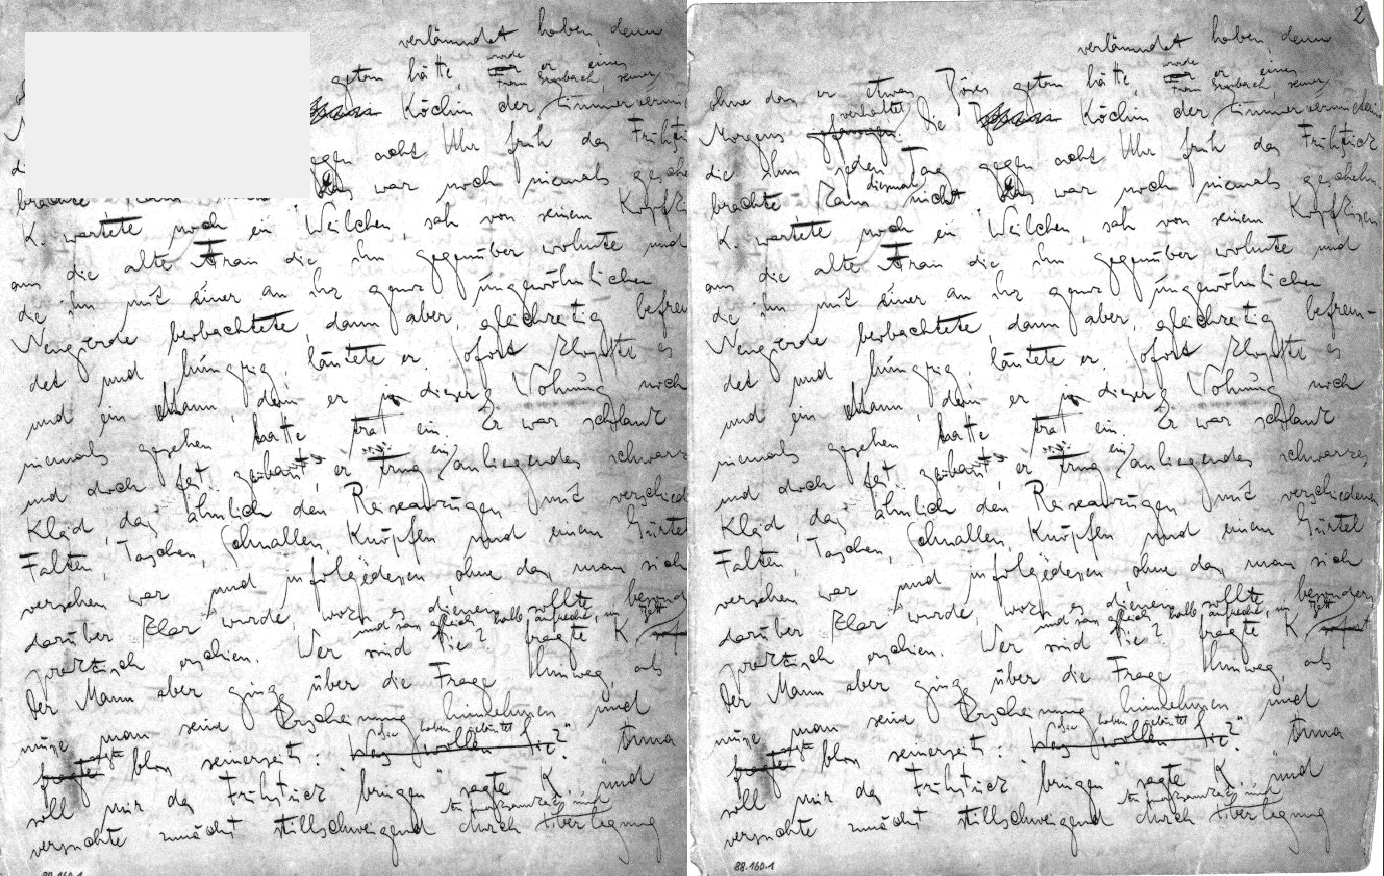 verläumdet haben, denn
getan hätte, wurde er eines
Köchin der Zimmervermi
Frau Grubach, seiner
gegen acht Uhr früh das Frühstü
brachte das war noch niemals gesche
K. wartete noch ein Weilchen, sah von seinem Kopfki
aus die alte Frau die ihm gegenüber wohnte und
die ihn mit einer an ihr ganz ungewöhnlichen
Neugierde beobachtete, dann aber, gleichzeitig befrem
det und hungrig, läutete er. Sofort klopfte es
und ein Mann, den er in dieser Wohnung noch
niemals gesehen hatte trat ein. Er war schlank
und doch fest gebaut, er trug ein anliegendes schwarzes
Kleid, das ähnlich den Reiseanzügen mit verschied
Falten, Taschen, Schnallen, Knöpfen und einem Gürtel
versehen war und infolgedessen, ohne dass man sich
darüber klar wurde, wozu es dienen sollte, besond
und sass gleich halb aufrecht im
praktisch erschien. Wer sind Sie? fragte K.
Der Mann aber ging über die Frage hinweg, als
müsse man seine Erscheinung hinnehmen und
sagte bloss seinerseits: "Sie haben geläutet?" "Anna
soll mir das Frühstück bringen" sagte K. und
versuchte zunächst stillschweigend durch Überlegung
88.160.1
2
verläumdet haben, denn
ohne dass er etwas Böses getan hätte, wurde er eines
Morgens verhaftet. Die Köchin der Zimmervermieterin
gefangen
Frau Grubach, seiner
die ihm jeden Tag gegen acht Uhr früh das Frühstück
brachte, kam diesmal nicht. Das war noch niemals geschehn.
K. wartete noch ein Weilchen, sah von seinem Kopfkissen
aus die alte Frau die ihm gegenüber wohnte und
die ihn mit einer an ihr ganz ungewöhnlichen
Neugierde beobachtete, dann aber, gleichzeitig befrem-
det und hungrig, läutete er. Sofort klopfte es
und ein Mann, den er in dieser Wohnung noch
niemals gesehen hatte trat ein. Er war schlank
und doch fest gebaut, er trug ein anliegendes schwarzes
Kleid, das ähnlich den Reiseanzügen mit verschiedenen
Falten, Taschen, Schnallen, Knöpfen und einem Gürtel
versehen war und infolgedessen, ohne dass man sich
darüber klar wurde, wozu es dienen sollte, besonders
und sass gleich halb aufrecht im Bett
praktisch erschien. Wer sind Sie? fragte K.
Der Mann aber ging über die Frage hinweg, als
müsse man seine Erscheinung hinnehmen und
sagte bloss seinerseits: "Sie haben geläutet?" "Anna
fragte Was wollen Sie?
soll mir das Frühstück bringen" sagte K. und
versuchte zunächst stillschweigend durch Überlegung
88.160.1